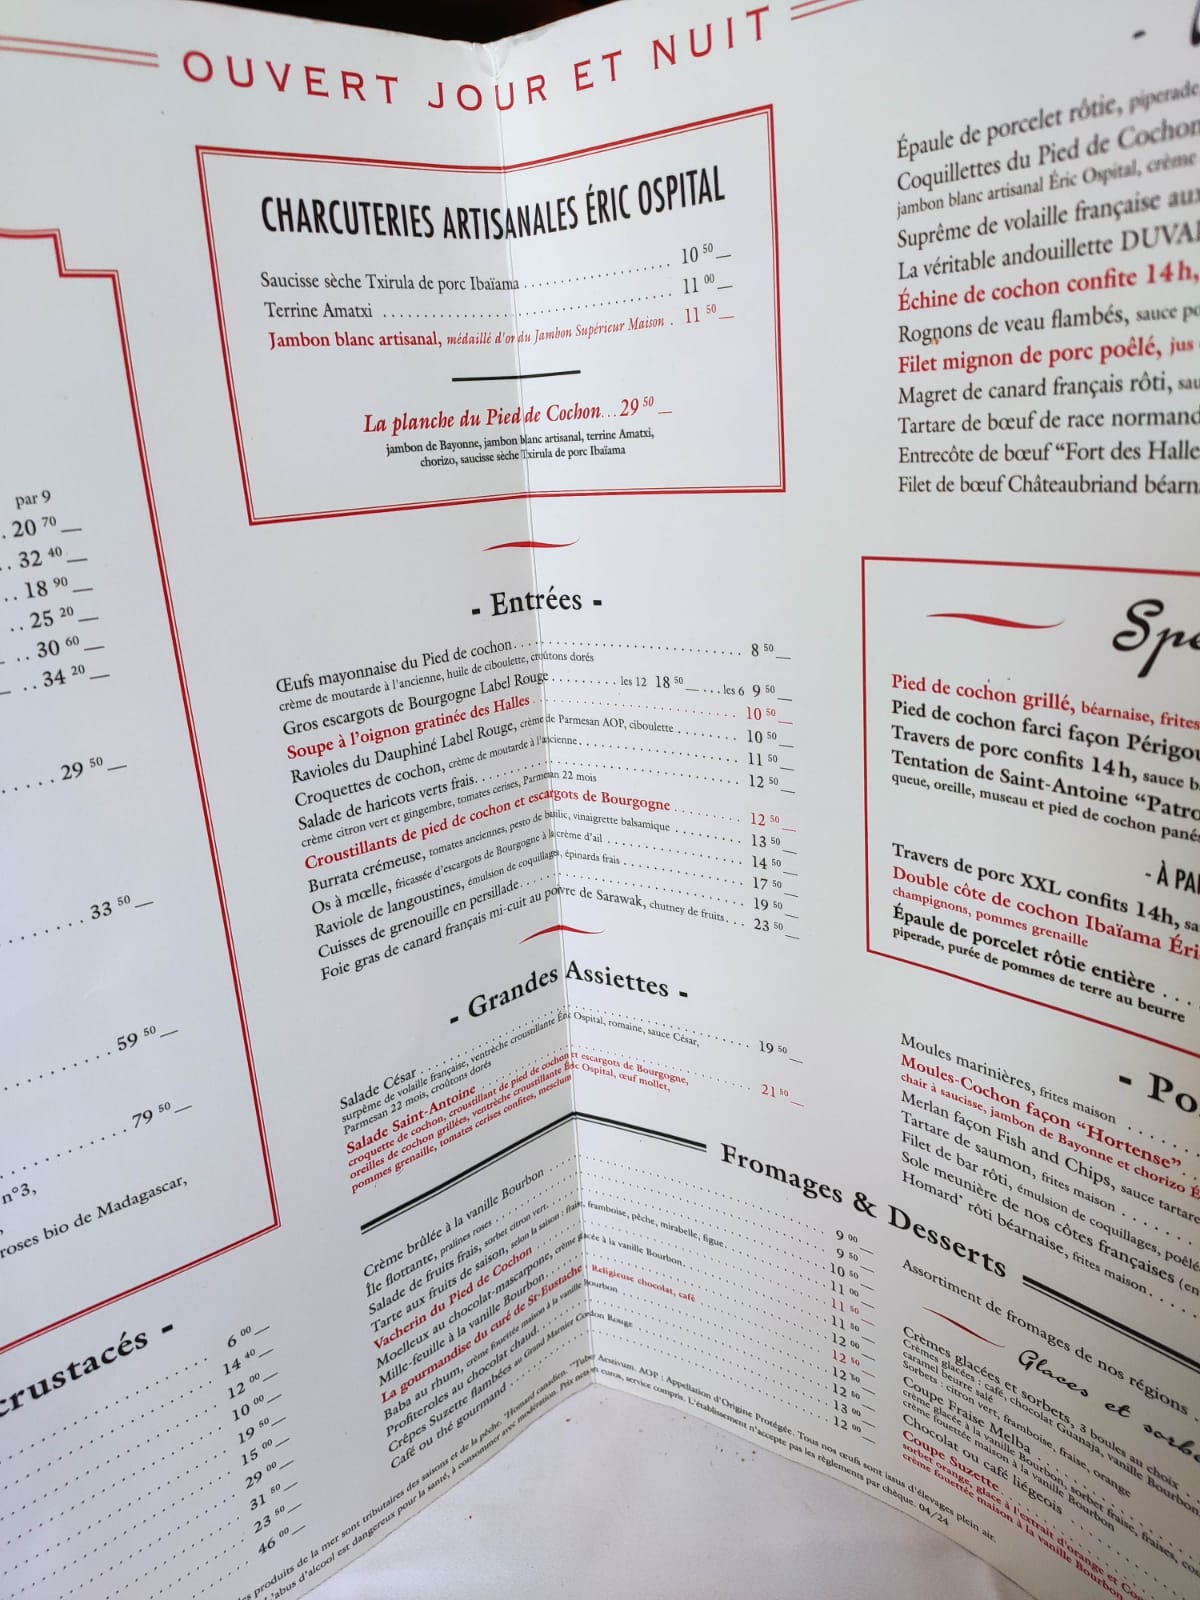 OUVERT JOUR ET NUIT
CHARCUTERIES ARTISANALES ÉRIC OSPITAL
Saucisse sèche Txirula de porc Ibaïama 10 50
Terrine Amatxi 11 00
Jambon blanc artisanal, médaillé d'or du Jambon Supérieur Maison . 11 50
La planche du Pied de Cochon...29 50
jambon de Bayonne, jambon blanc artisanal, terrine Amatxi,
chorizo, saucisse sèche Txirula de porc Ibaïama
par 9
20 70
32 40
18 90
25 20
30 60
34 20
29 50
33 50
59 50
79 50
n°3,
roses bio de Madagascar,
crustacés -
6 00
14 40
12 00
10 00
19 50
15 00
29 00
31 50
23 50
46 00
- Entrées -
Œufs mayonnaise du Pied de cochon 8 50
crème de moutarde à l'ancienne, huile de ciboulette, croûtons dorés
Gros escargots de Bourgogne Label Rouge les 12 18 50 les 6 9 50
Soupe à l'oignon gratinée des Halles 10 50
Ravioles du Dauphiné Label Rouge, crème de Parmesan AOP, ciboulette 10 50
Croquettes de cochon, crème de moutarde à l'ancienne 11 50
Salade de haricots verts frais 12 50
crème citron vert et gingembre, tomates cerises, Parmesan 22 mois
Croustillants de pied de cochon et escargots de Bourgogne 12 50
Burrata crémeuse, tomates anciennes, pesto de basilic, vinaigrette balsamique 13 50
Os à mœlle, fricassée d'escargots de Bourgogne à la crème d'ail 14 50
Raviole de langoustines, émulsion de coquillages, épinards frais 17 50
Cuisses de grenouille en persillade 19 50
Foie gras de canard français mi-cuit au poivre de Sarawak, chutney de fruits 23 50
- Grandes Assiettes -
Salade César 19 50
surpême de volaille française, ventrèche croustillante Éric Ospital, romaine, sauce César,
Parmesan 22 mois, croûtons dorés
Salade Saint-Antoine 21 50
croquette de cochon, croustillant de pied de cochon et escargots de Bourgogne,
oreilles de cochon grillées, ventrèche croustillante Éric Ospital, œuf mollet,
pommes grenaille, tomates cerises confites, mesclum
Fromages & Desserts
Crème brûlée à la vanille Bourbon 9 00
Île flottante, pralines roses 9 50
Salade de fruits frais, sorbet citron vert 10 50
Tarte aux fruits de saison, selon la saison : fraise, framboise, pêche, mirabelle, figue 11 00
Vacherin du Pied de Cochon 11 50
Moelleux au chocolat-mascarpone, crème glacée à la vanille Bourbon 11 50
Mille-feuille à la vanille Bourbon 12 00
La gourmandise du curé de St-Eustache : Religieuse chocolat, café 12 50
Baba au rhum, crème fouettée maison à la vanille Bourbon 12 50
Profiteroles au chocolat chaud 12 50
Crêpes Suzette flambées au Grand Marnier Cordon Rouge 13 00
Café ou thé gourmand 12 00
produits de la mer sont tributaires des saisons et de la pêche. *Homard canadien. **Tuber Aestivum. AOP : Appellation d'Origine Protégée. Tous nos œufs sont issus d'élevages plein air.
L'abus d'alcool est dangereux pour la santé, à consommer avec modération. Prix nets en euros, service compris. L'établissement n'accepte pas les règlements par chèque. 04/24
Épaule de porcelet rôtie, piperade
Coquillettes du Pied de Cochon
jambon blanc artisanal Éric Ospital, crème
Suprême de volaille française aux
La véritable andouillette DUVAL
Échine de cochon confite 14h,
Rognons de veau flambés, sauce
Filet mignon de porc poêlé, jus
Magret de canard français rôti,
Tartare de bœuf de race normand
Entrecôte de bœuf "Fort des Halle
Filet de bœuf Châteaubriand béarn
Spé
Pied de cochon grillé, béarnaise, frites
Pied de cochon farci façon Périgou
Travers de porc confits 14h, sauce
Tentation de Saint-Antoine "Patro
queue, oreille, museau et pied de cochon panés
- À PA
Travers de porc XXL confits 14h,
Double côte de cochon Ibaïama Éri
champignons, pommes grenaille
Épaule de porcelet rôtie entière
piperade, purée de pommes de terre au beurre
- Po
Moules marinières, frites maison
Moules-Cochon façon "Hortense"
chair à saucisse, jambon de Bayonne et chorizo
Merlan façon Fish and Chips, sauce tartare
Tartare de saumon, frites maison
Filet de bar rôti, émulsion de coquillages,
Sole meunière de nos côtes françaises
Homard* rôti béarnaise, frites maison
Assortiment de fromages de nos régions
Glaces et sorbe
Crèmes glacées et sorbets, 3 boules au choix
Crèmes glacées : café, chocolat Guanaja, vanille Bourbon
caramel beurre salé
Sorbets : citron vert, framboise, fraise, orange
Coupe Fraise Melba
crème glacée à la vanille Bourbon, sorbet fraise, fraises,
crème fouettée maison à la vanille Bourbon
Chocolat ou café liégeois
Coupe Suzette
sorbet orange, glace à l'extrait d'orange et
crème fouettée maison à la vanille Bourbon